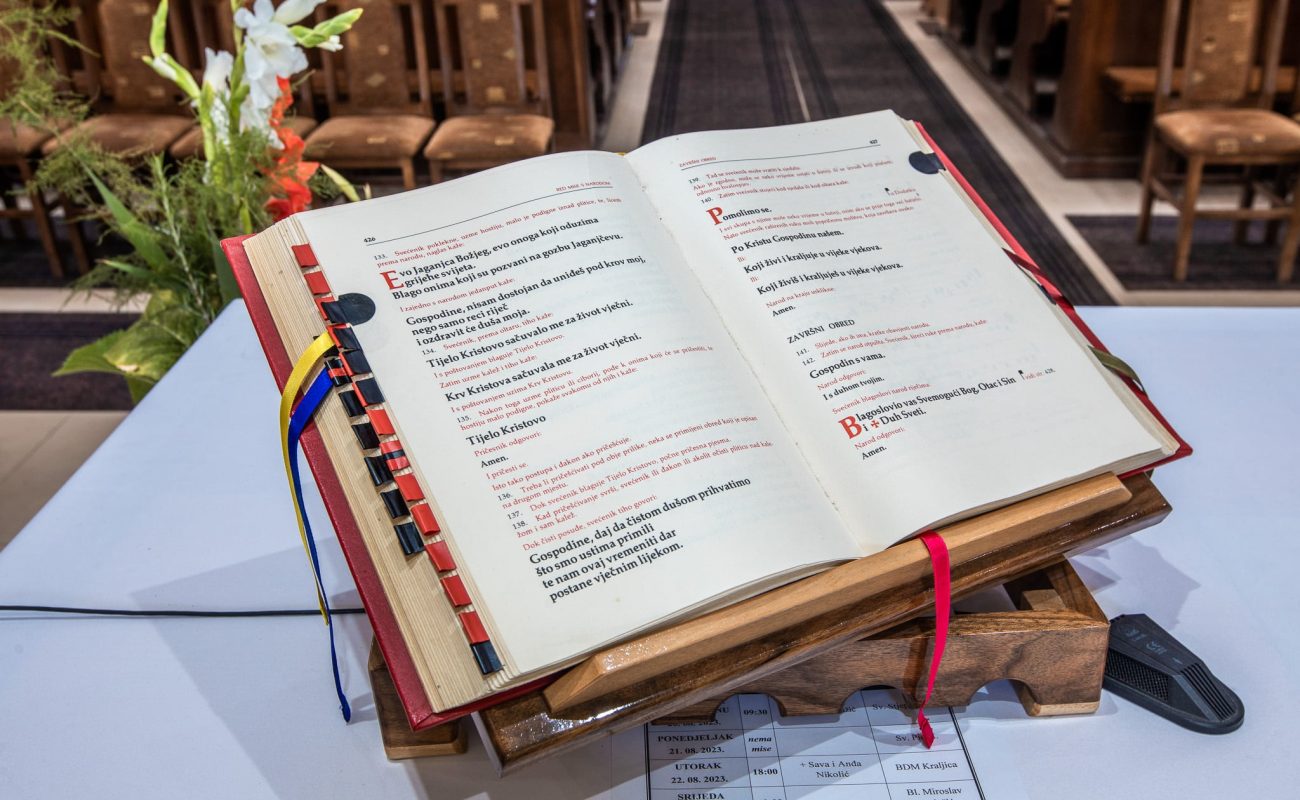 426
RED MISE S NARODOM
133. Svećenik poklekne, uzme hostiju, malo je podigne iznad plitice, te, licem
prema narodu, naglas kaže:
Evo Jaganjca Božjeg, evo onoga koji oduzima
grijehe svijeta.
Blago onima koji su pozvani na gozbu Jaganjčevu.
I zajedno s narodom jedanput kaže:
Gospodine, nisam dostojan da uniđeš pod krov moj,
nego samo reci riječ
i ozdravit će duša moja.
134. Svećenik, prema oltaru, tiho kaže:
Tijelo Kristovo sačuvalo me za život vječni.
I s poštovanjem blaguje Tijelo Kristovo.
Zatim uzme kalež i tiho kaže:
Krv Kristova sačuvala me za život vječni.
I s poštovanjem uzima Krv Kristovu.
135. Nakon toga uzme pliticu ili ciborij, pođe k onima koji će se pričestiti, te
hostiju malo podigne, pokaže svakomu od njih i kaže:
Tijelo Kristovo
Pričesnik odgovori:
Amen.
I pričesti se.
Isto tako postupa i đakon ako pričešćuje.
Treba li pričešćivati pod obje prilike, neka se primijeni obred koji je opisan
na drugom mjestu.
136. Dok svećenik blaguje Tijelo Kristovo, počne pričesna pjesma.
137. Kad pričešćivanje svrši, svećenik ili đakon ili akolit očisti pliticu nad kale-
138.
žom i sam kalež.
Dok čisti posuđe, svećenik tiho govori:
Gospodine, daj da čistom dušom prihvatimo
što smo ustima primili
te nam ovaj vremeniti dar
postane vječnim lijekom.
ZAVRŠNI OBRED
427
139. Tad se svećenik može vratiti k sjedalu.
140. Zatim svećenik stojeći kod sjedala ili kod oltara kaže:
Pomolimo se.
Po Kristu Gospodinu našem.
Ili:
Koji živi i kraljuje u vijeke vjekova.
Ili:
Koji živiš i kraljuješ u vijeke vjekova.
Narod na kraju usklikne:
Amen.
ZAVRŠNI OBRED
141. Slijede, ako ih ima, kratke obavijesti narodu.
142. Zatim se narod otpušta. Svećenik, šireći ruke prema narodu, kaže:
Gospodin s vama.
Narod odgovori:
I s duhom tvojim.
Svećenik blagoslovi narod riječima:
Blagoslovio vas Svemogući Bog, Otac i Sin
i ✠ Duh Sveti.
Narod odgovori:
Amen.
09:30
PONEDJELJAK
21. 08. 2023.
nema
mise
UTORAK
22. 08. 2023.
18:00
+ Sava i Anđa
Nikolić
BDM Kraljica
SRIJEDA
Bl. Miroslav